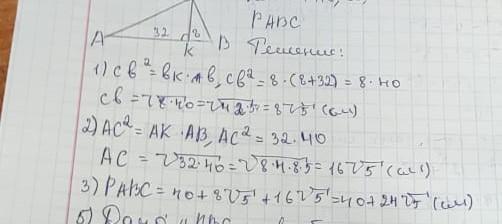 PABC
A 32 8 K B
Решение:
1) CB² = BK·AB, CB² = 8·(8+32) = 8·40
CB = √8·40 = √4²5 = 8√5 (см)
2) AC² = AK·AB, AC² = 32·40
AC = √32·40 = √8·4·8·5 = 16√5 (см)
3) PABC = 40+8√5+16√5 = 40+24√5 (см)